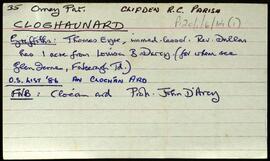 35 Omey Par. CLIFDEN R.C. PARISH
CLOGHAUNARD
Griffiths: Thomas Eyre, immed. lessor. Rev. Dallas
has 1 acre from Louisa B D'Arcy (for whom see
Glen Ierne, Td.)
O.S. LIST '86 AN CLOCHÁN ARD
FNB: Cloċán ard Prop. John D'Arcy